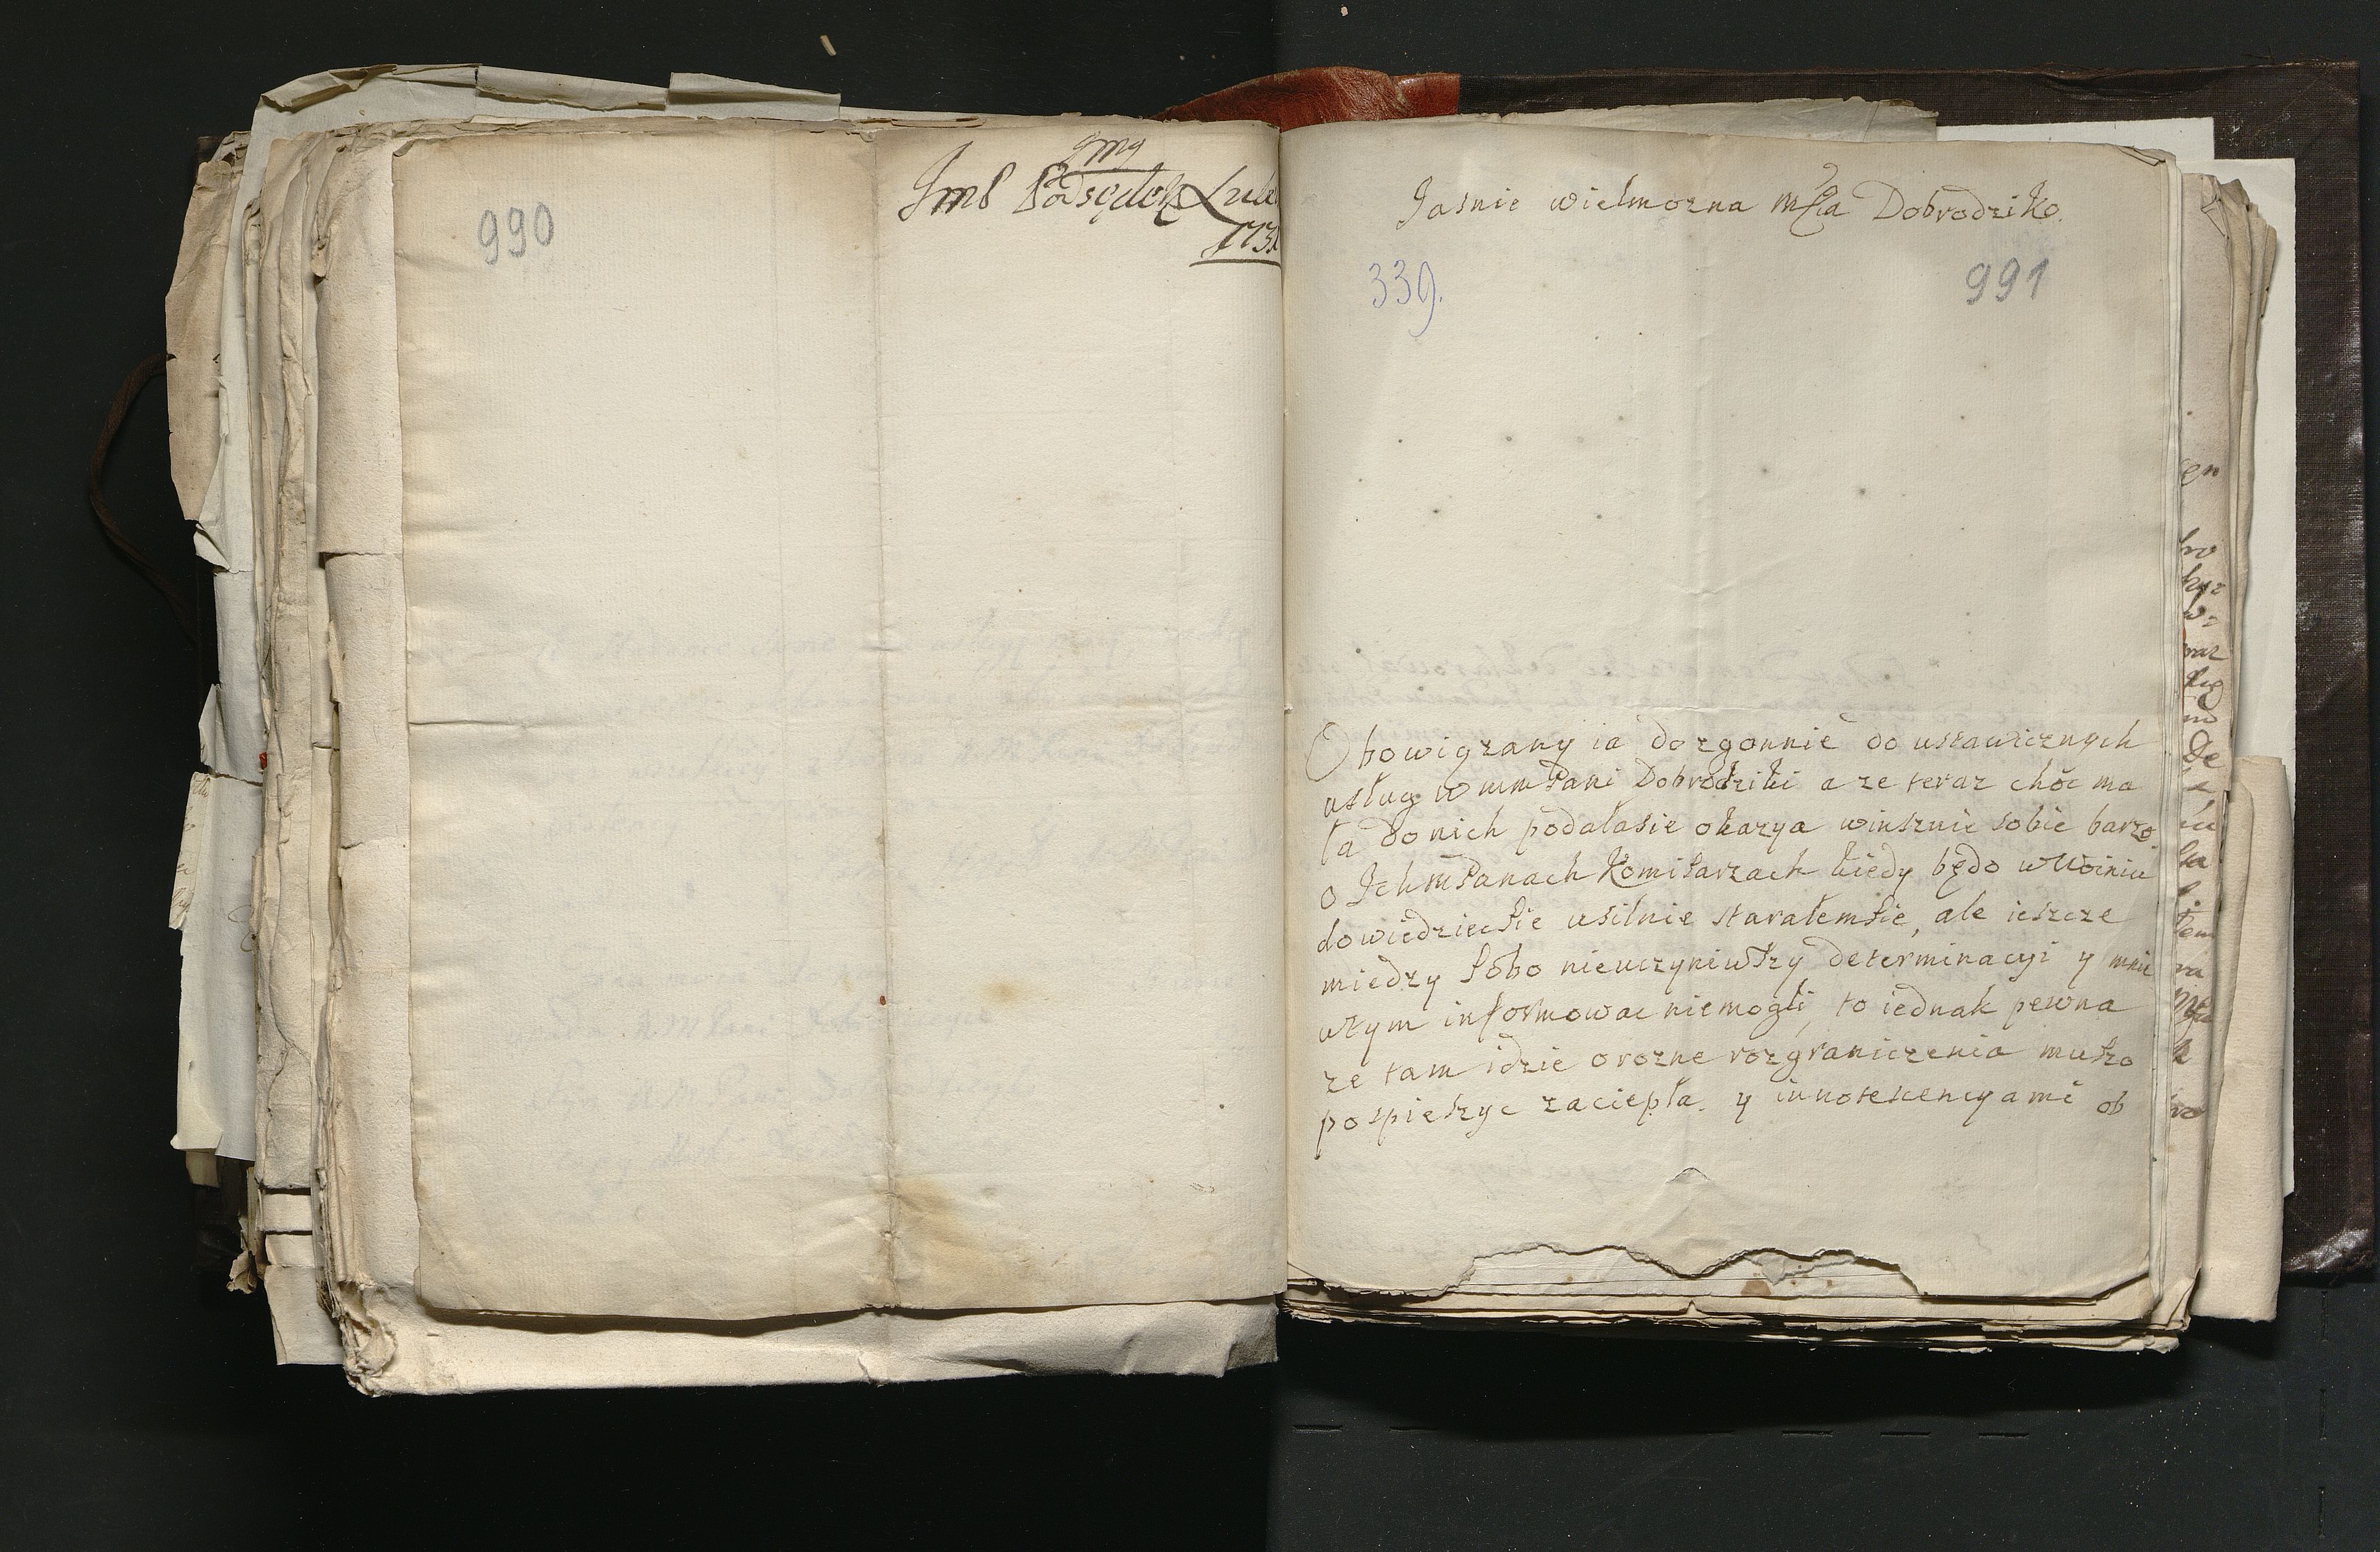 990
Jmś Podsędek Lube
1731
Jasnie wielmozna mscia Dobrodziko.
339.
991
Obowiązany ia dozgonnie do ustawicznych
usług wmmPani Dobrodziki a ze teraz choc ma
ła do nich podałasie okazya winsznie sobie barzo
o IchmPanach Komisarzach kiedy będo w
dowiedziecsie usilnie starałemsie, ale ieszcze
miedzy sobo nieuczyniwszy determinacyi y mnie
wtym informowac niemogli, to iednak pewna
ze tam idzie orozne rozgraniczenia muszo
pospieszyc zaciepła y innotescencyami ob